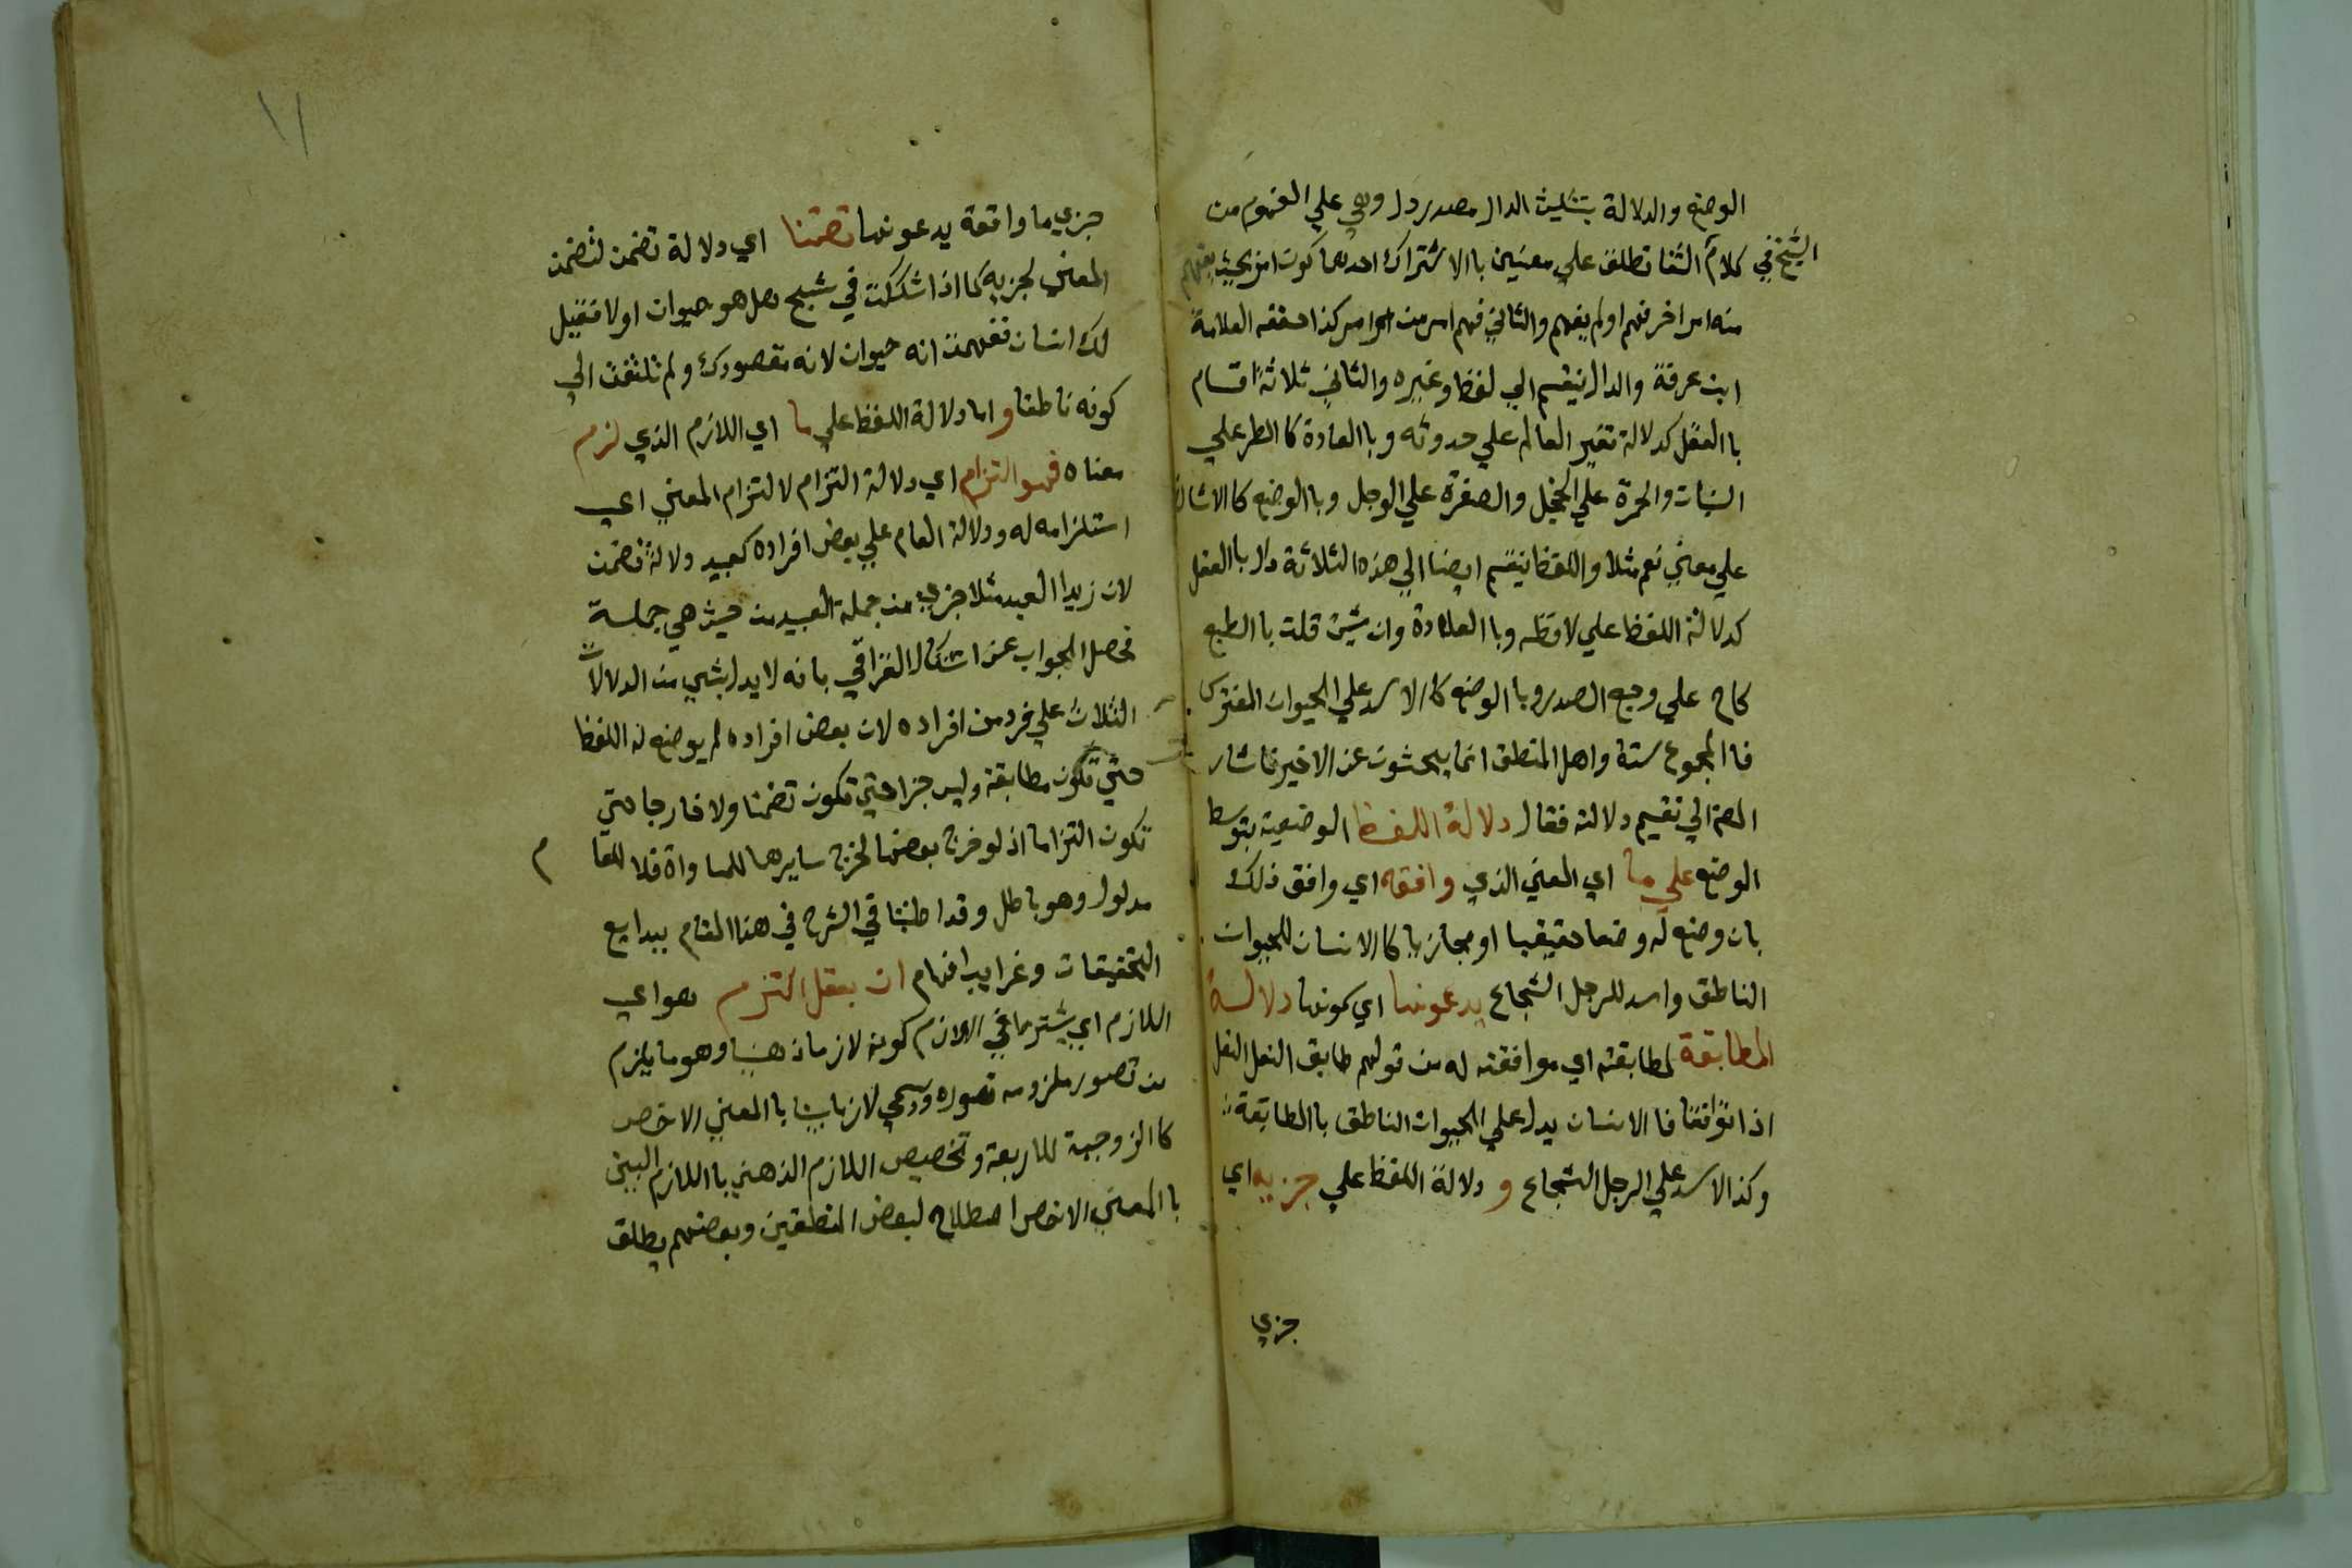 الوضع والدلالة بتثليث الدال مصدر دل وهي علي المفهوم من
الشيخ في كلام الشفا تطلق علي معنيين باالاشتراك احدهما كون امر بحيث يفهم
منه امر اخر فهم او لم يفهم والثاني فهم امر من امر كذا حققه العلامة
ابن عرفة والدال ينقسم الي لفظ وغيره والثاني ثلاثة اقسام
باالعقل كدلالة تغير العالم علي حدوثه وباالعادة كاالمطر علي
النبات والحمرة علي الخجل والصفرة علي الوجل وباالوضع كاالاشارة
علي معني نعم مثلا واللفظ ينقسم ايضا الي هذه الثلاثة دال باالعقل
كدلالة اللفظ علي لافظه وباالعادة وان شيت قلت باالطبع
كاح علي وجع الصدر وباالوضع كاالاسد علي الحيوان المفترس
فاالمجموع ستة واهل المنطق انما يبحثون عن الاخير فاشار
المص الي تقسيم دلالته فقال دلالة اللفظ الوضعية بتوسط
الوضع علي ما اي المعني الذي وافقه اي وافق ذلك
بان وضع له وضعا حقيقيا او مجازيا كاالانسان للحيوان
الناطق واسد للرجل الشجاع يدعونها اي كونها دلالة
المطابقة لمطابقته اي موافقته له من قولهم طابق النعل النعل
اذا توافقتا فاالانسان يدل علي الحيوان الناطق باالمطابقة
وكذا الاسد علي الرجل الشجاع و دلالة اللفظ علي جزيه اي
جزي
١١
جزيي ما وافقه يدعونها تضمنا اي دلالة تضمن لتضمن
المعني لجزيه كما اذا شككت في شبح هل هو حيوان او لا فقيل
لك انسان ففهمت انه حيوان لانه مقصودك ولم تلتفت الي
كونه ناطقا و اما دلالة اللفظ علي ما اي اللازم الذي لزم
معناه فهو التزام اي دلالة التزام لالتزام المعني اي
استلزامه له ودلالة العام علي بعض افراده كعبيد دلالة تضمن
لان زيدا العبد مثلا جزي من جملة العبيد من حيث هي جملة
فحصل الجواب عن اشكال القرافي بانه لا يدل بشي من الدلالات
الثلاث علي فرد من افراده لان بعض افراده لم يوضع له اللفظ
حتي تكون مطابقة وليس جزا حتي تكون تضمنا ولا خارجا حتي
تكون التزاما اذ لو خرج بعضها لخرج سايرها للمساواة فلا للعام
مدلول وهو باطل وقد اطنبنا في الشرح في هذا المقام ببدايع
التحقيقات وغرايب افهام ان بعقل التزم هو اي
اللازم اي يشترط في اللازم كونه لازما ذهنيا وهو ما يلزم
من تصور ملزومه تصوره ويسمي لازما بينا باالمعني الاخص
كاالزوجية للاربعة وتخصيص اللازم الذهني باللازم البين
باالمعني الاخص اصطلاح لبعض المنطقين وبعضهم يطلق